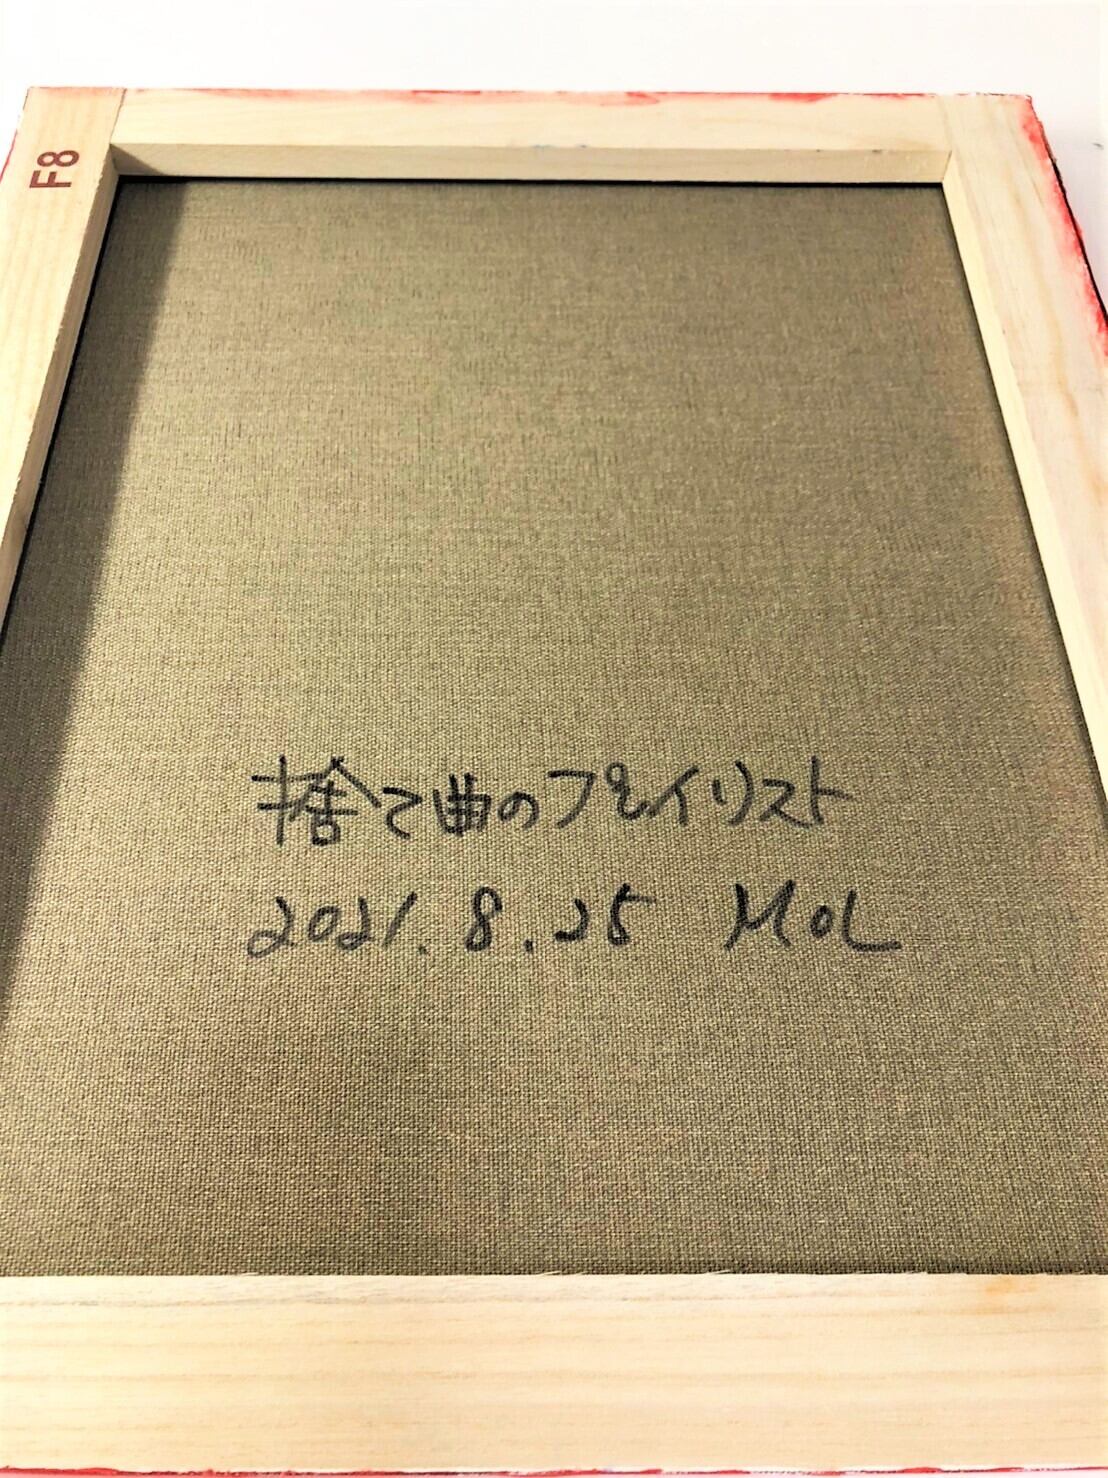 F8
捨て曲のプレイリスト
2021.8.25 MOL